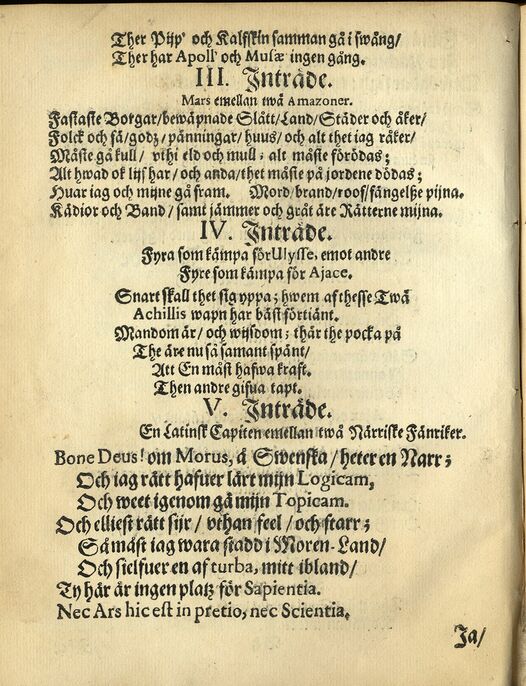 Ther Pijp' och Kalfskin samman gå i swång/
Ther har Apoll' och Musæ ingen gång.
III. Inträde.
Mars emellan twå Amazoner.
Fastaste Borgar/bewäpnade Slått/Land/Städer och åker/
Folck och fä/godz/pänningar/huus/och alt thet iag råker/
Måste gå kull/ vthi eld och mull; alt måste förödas;
Alt hwad ok lijf har/och anda/thet måste på jordene dödas;
Huar iag och mijne gå fram. Mord/brand/roof/fängelße pijna.
Kädior och Band/samt jämmer och gråt äre Rätterne mijna.
IV. Inträde.
Fyra som kämpa för Ulysse, emot andre
Fyre som kämpa för Ajace.
Snart skall thet sig yppa; hwem af thesse Twå
Achillis wapn har bäst förtiänt.
Mandom är/och wijsdom; thär the pocka på
The äre nu så samant spänt/
Att En måst hafwa kraft.
Then andre gifua tapt.
V. Inträde.
En Latinsk Capiten emellan twå Närriske Fänriker.
Bone Deus! om Morus, á Swenska/heter en Narr;
Och iag rätt hafuer lärt mijn Logicam,
Och weet igenom gå mijn Topicam.
Och elliest rätt sijr/vthan feel/och starr;
Så måst iag wara stadd i Moren-Land/
Och sielfuer en af turba, mitt ibland/
Ty här är ingen platz för Sapientia.
Nec Ars hic est in pretio, nec Scientia.
Ja/